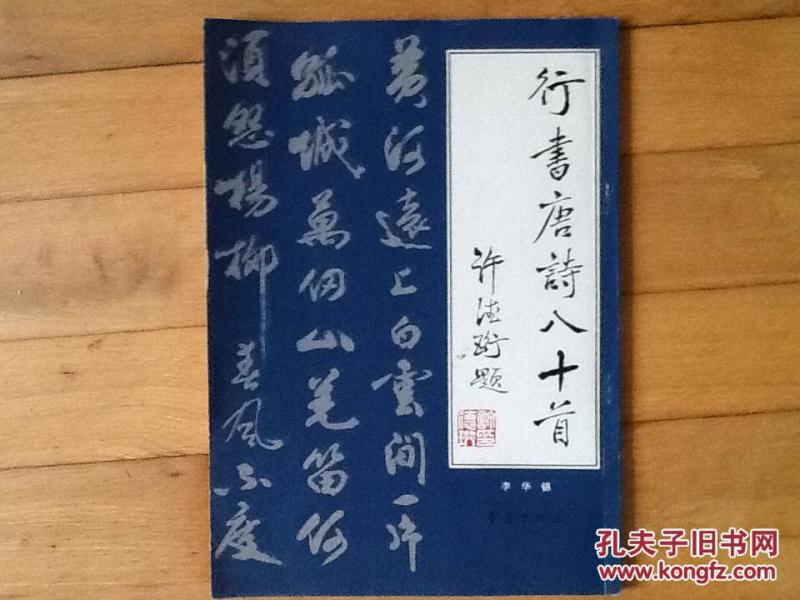 行書唐詩八十首
许德珩题
李华锦
黄河遠上白雲间一片
孤城萬仞山羌笛何
须怨楊柳春风不度
孔夫子旧书网
www.kongfz.com